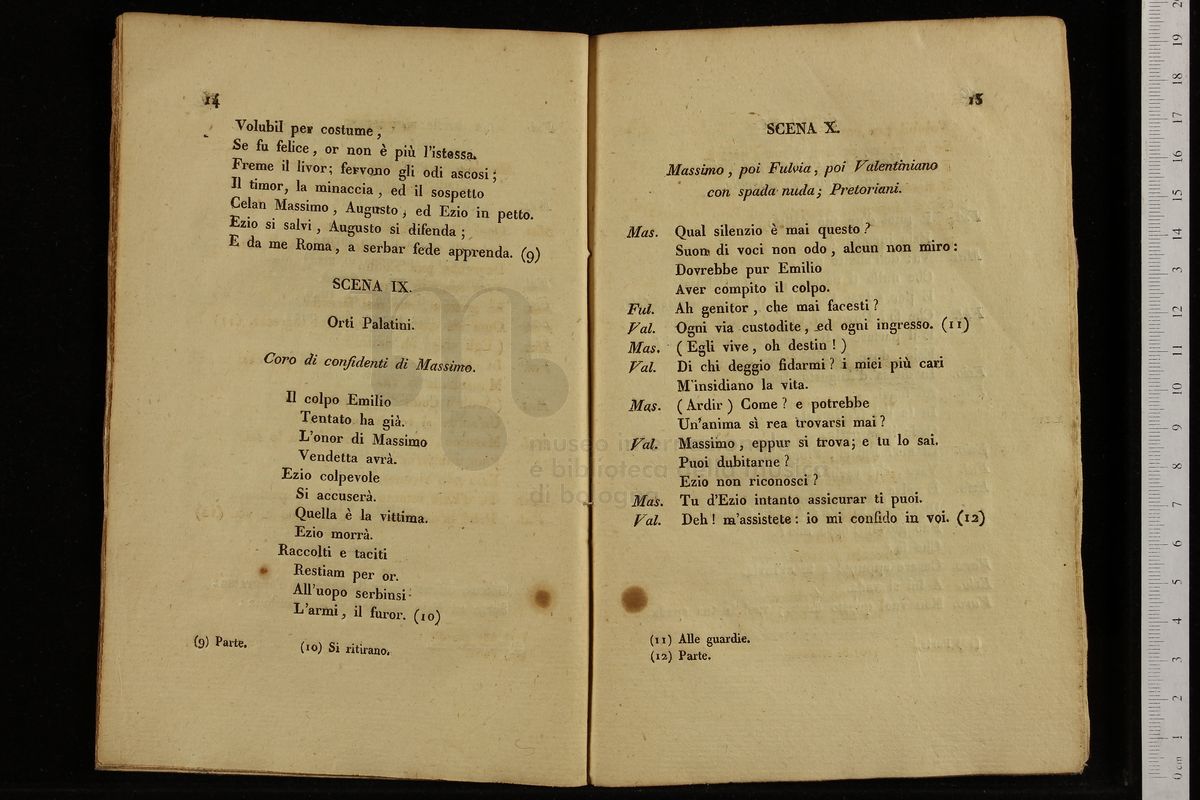 14
Volubil per costume,
Se fu felice, or non è più l'istessa.
Freme il livor; fervono gli odi ascosi;
Il timor, la minaccia, ed il sospetto
Celan Massimo, Augusto, ed Ezio in petto.
Ezio si salvi, Augusto si difenda;
E da me Roma, a serbar fede apprenda. (9)
SCENA IX.
Orti Palatini.
Coro di confidenti di Massimo.
Il colpo Emilio
Tentato ha già.
L'onor di Massimo
Vendetta avrà.
Ezio colpevole
Si accuserà.
Quella è la vittima.
Ezio morrà.
Raccolti e taciti
Restiam per or.
All'uopo serbinsi
L'armi, il furor. (10)
(9) Parte. (10) Si ritirano.
15
SCENA X.
Massimo, poi Fulvia, poi Valentiniano
con spada nuda; Pretoriani.
Mas. Qual silenzio è mai questo?
Suon di voci non odo, alcun non miro:
Dovrebbe pur Emilio
Aver compito il colpo.
Ful. Ah genitor, che mai facesti?
Val. Ogni via custodite, ed ogni ingresso. (11)
Mas. (Egli vive, oh destin!)
Val. Di chi deggio fidarmi? i miei più cari
M'insidiano la vita.
Mas. (Ardir) Come? e potrebbe
Un'anima sì rea trovarsi mai?
Val. Massimo, eppur si trova; e tu lo sai.
Puoi dubitarne?
Ezio non riconosci?
Mas. Tu d'Ezio intanto assicurar ti puoi.
Val. Deh! m'assistete: io mi confido in voi. (12)
(11) Alle guardie.
(12) Parte.
museo internazionale
e biblioteca della musica
di bologna
0 cm 1 2 3 4 5 6 7 8 9 10 11 12 13 14 15 16 17 18 19